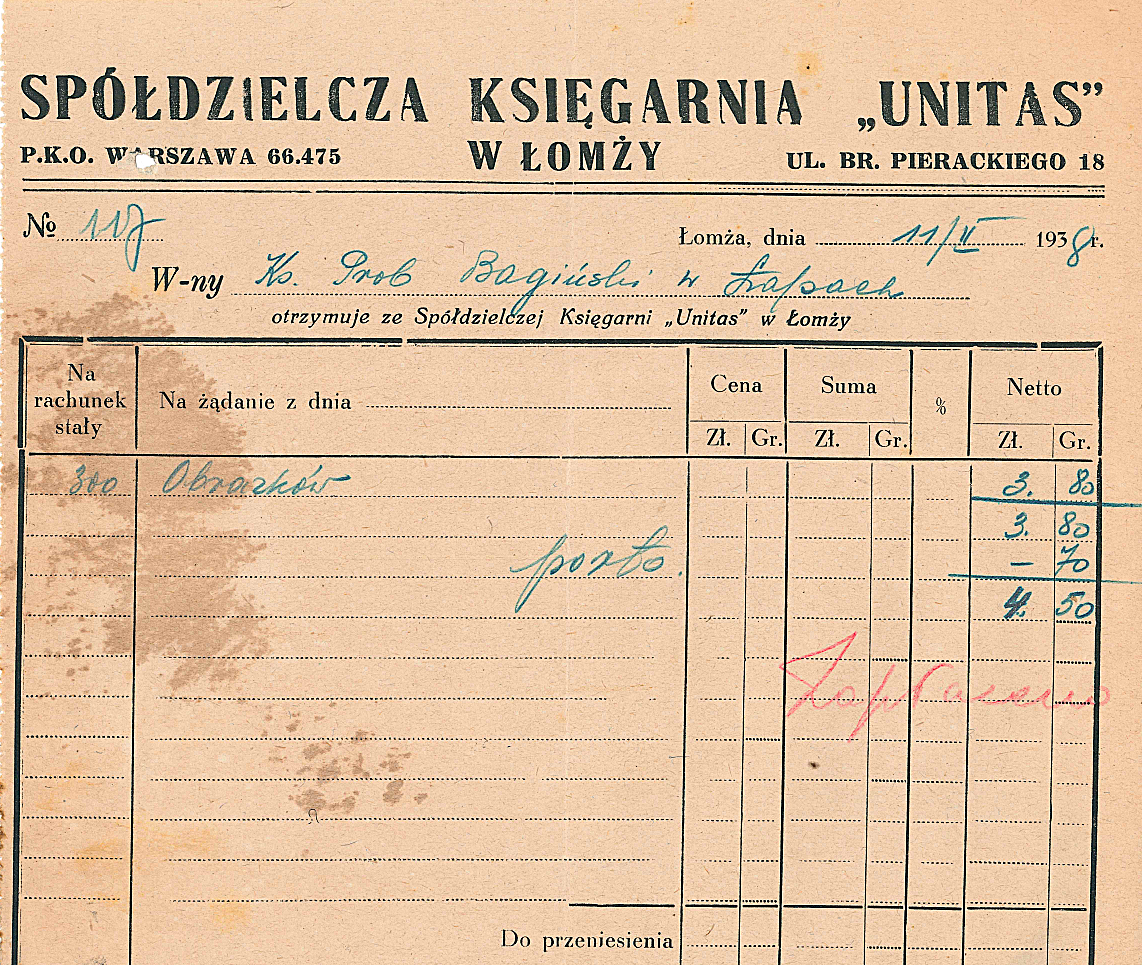 SPÓŁDZIELCZA KSIĘGARNIA „UNITAS”
P.K.O. WARSZAWA 66.475 W ŁOMŻY UL. BR. PIERACKIEGO 18
№ 117 Łomża, dnia 11/II 1938r.
W-ny Ks. Prob Bagiński w Łapach
otrzymuje ze Spółdzielczej Księgarni „Unitas” w Łomży
Na rachunek stały Na żądanie z dnia Cena Suma % Netto
Zł. Gr. Zł. Gr. Zł. Gr.
300 Obrazków 3. 80
3. 80
porto. – 70
4. 50
Zapłacono
Do przeniesienia